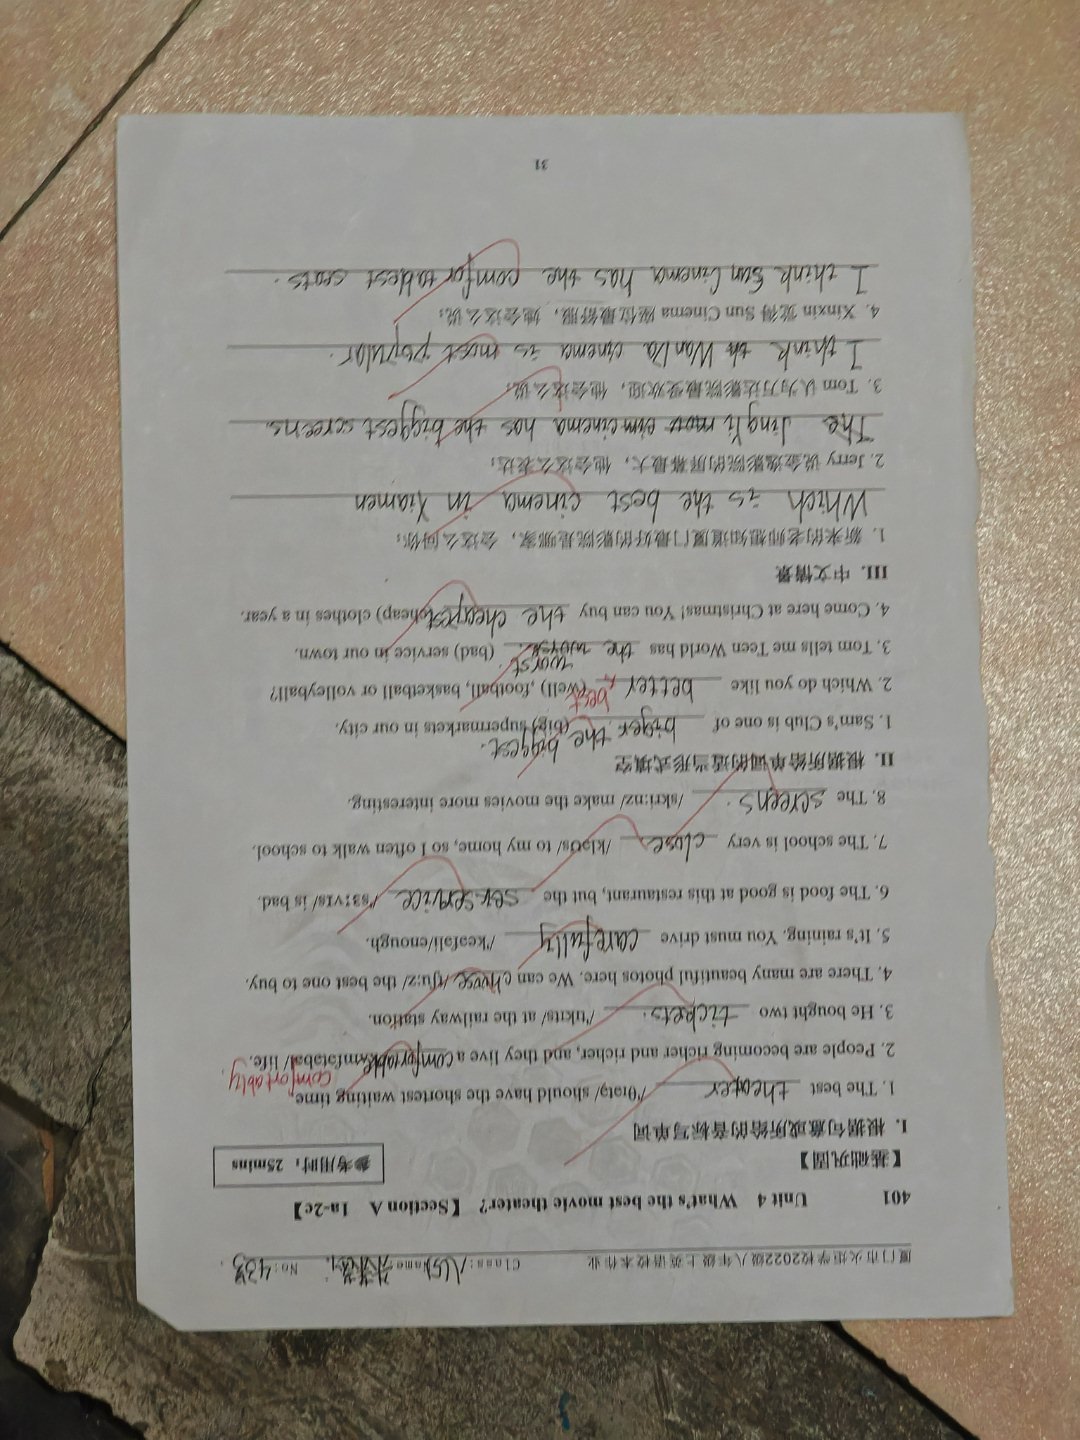 厦门市火炬学校2022级八年级上英语校本作业 Class: 八(5) Name: No: 433
401 Unit 4 What's the best movie theater? 【Section A 1a-2c】
【基础巩固】 参考用时：25mins
I. 根据句意或所给的音标写单词
1. The best theater /'θɪətə/ should have the shortest waiting time.
2. People are becoming richer and richer, and they live a comfortable /'kʌmfətəbəl/ life.
comfortably
3. He bought two tickets. /'tɪkɪts/ at the railway station.
4. There are many beautiful photos here. We can choose /tʃu:z/ the best one to buy.
5. It's raining. You must drive carefully /'keəfəli/enough.
6. The food is good at this restaurant, but the service /'sɜ:vɪs/ is bad.
7. The school is very close. /kləʊs/ to my home, so I often walk to school.
8. The screens. /skri:nz/ make the movies more interesting.
II. 根据所给单词的适当形式填空
the biggest.
1. Sam's Club is one of biger (big) supermarkets in our city.
best
2. Which do you like better (well), football, basketball or volleyball?
worst
3. Tom tells me Teen World has the (bad) service in our town.
4. Come here at Christmas! You can buy the cheapest (cheap) clothes in a year.
III. 中文情景
1. 新来的老师想知道厦门最好的影院是哪家，会这么问你：
Which is the best cinema in Xiamen
2. Jerry 说金逸影院的屏幕最大，他会这么表达：
The JingYi cinema has the biggest screens.
3. Tom 认为万达影院最受欢迎，他会这么说：
I think WanDa cinema is most popular.
4. Xinxin 觉得 Sun Cinema 座位最舒服，她会这么说：
I think Sun Cinema has the comfortablest seats.
31